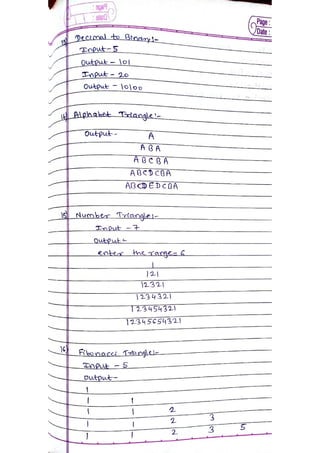 Page :
Date :
13) Decimal to Binary:-
Input - 5
Output - 101
Input - 20
Output - 10100
14) Alphabet Triangle:-
Output - A
ABA
ABCBA
ABCDCBA
ABCDEDCBA
15) Number Triangle:-
Input - 7
Output -
enter the range= 6
1
121
12321
1234321
123454321
12345654321
16) Fibonacci Triangle:-
Input - 5
Output -
1
1 1
1 1 2
1 1 2 3
1 1 2 3 5